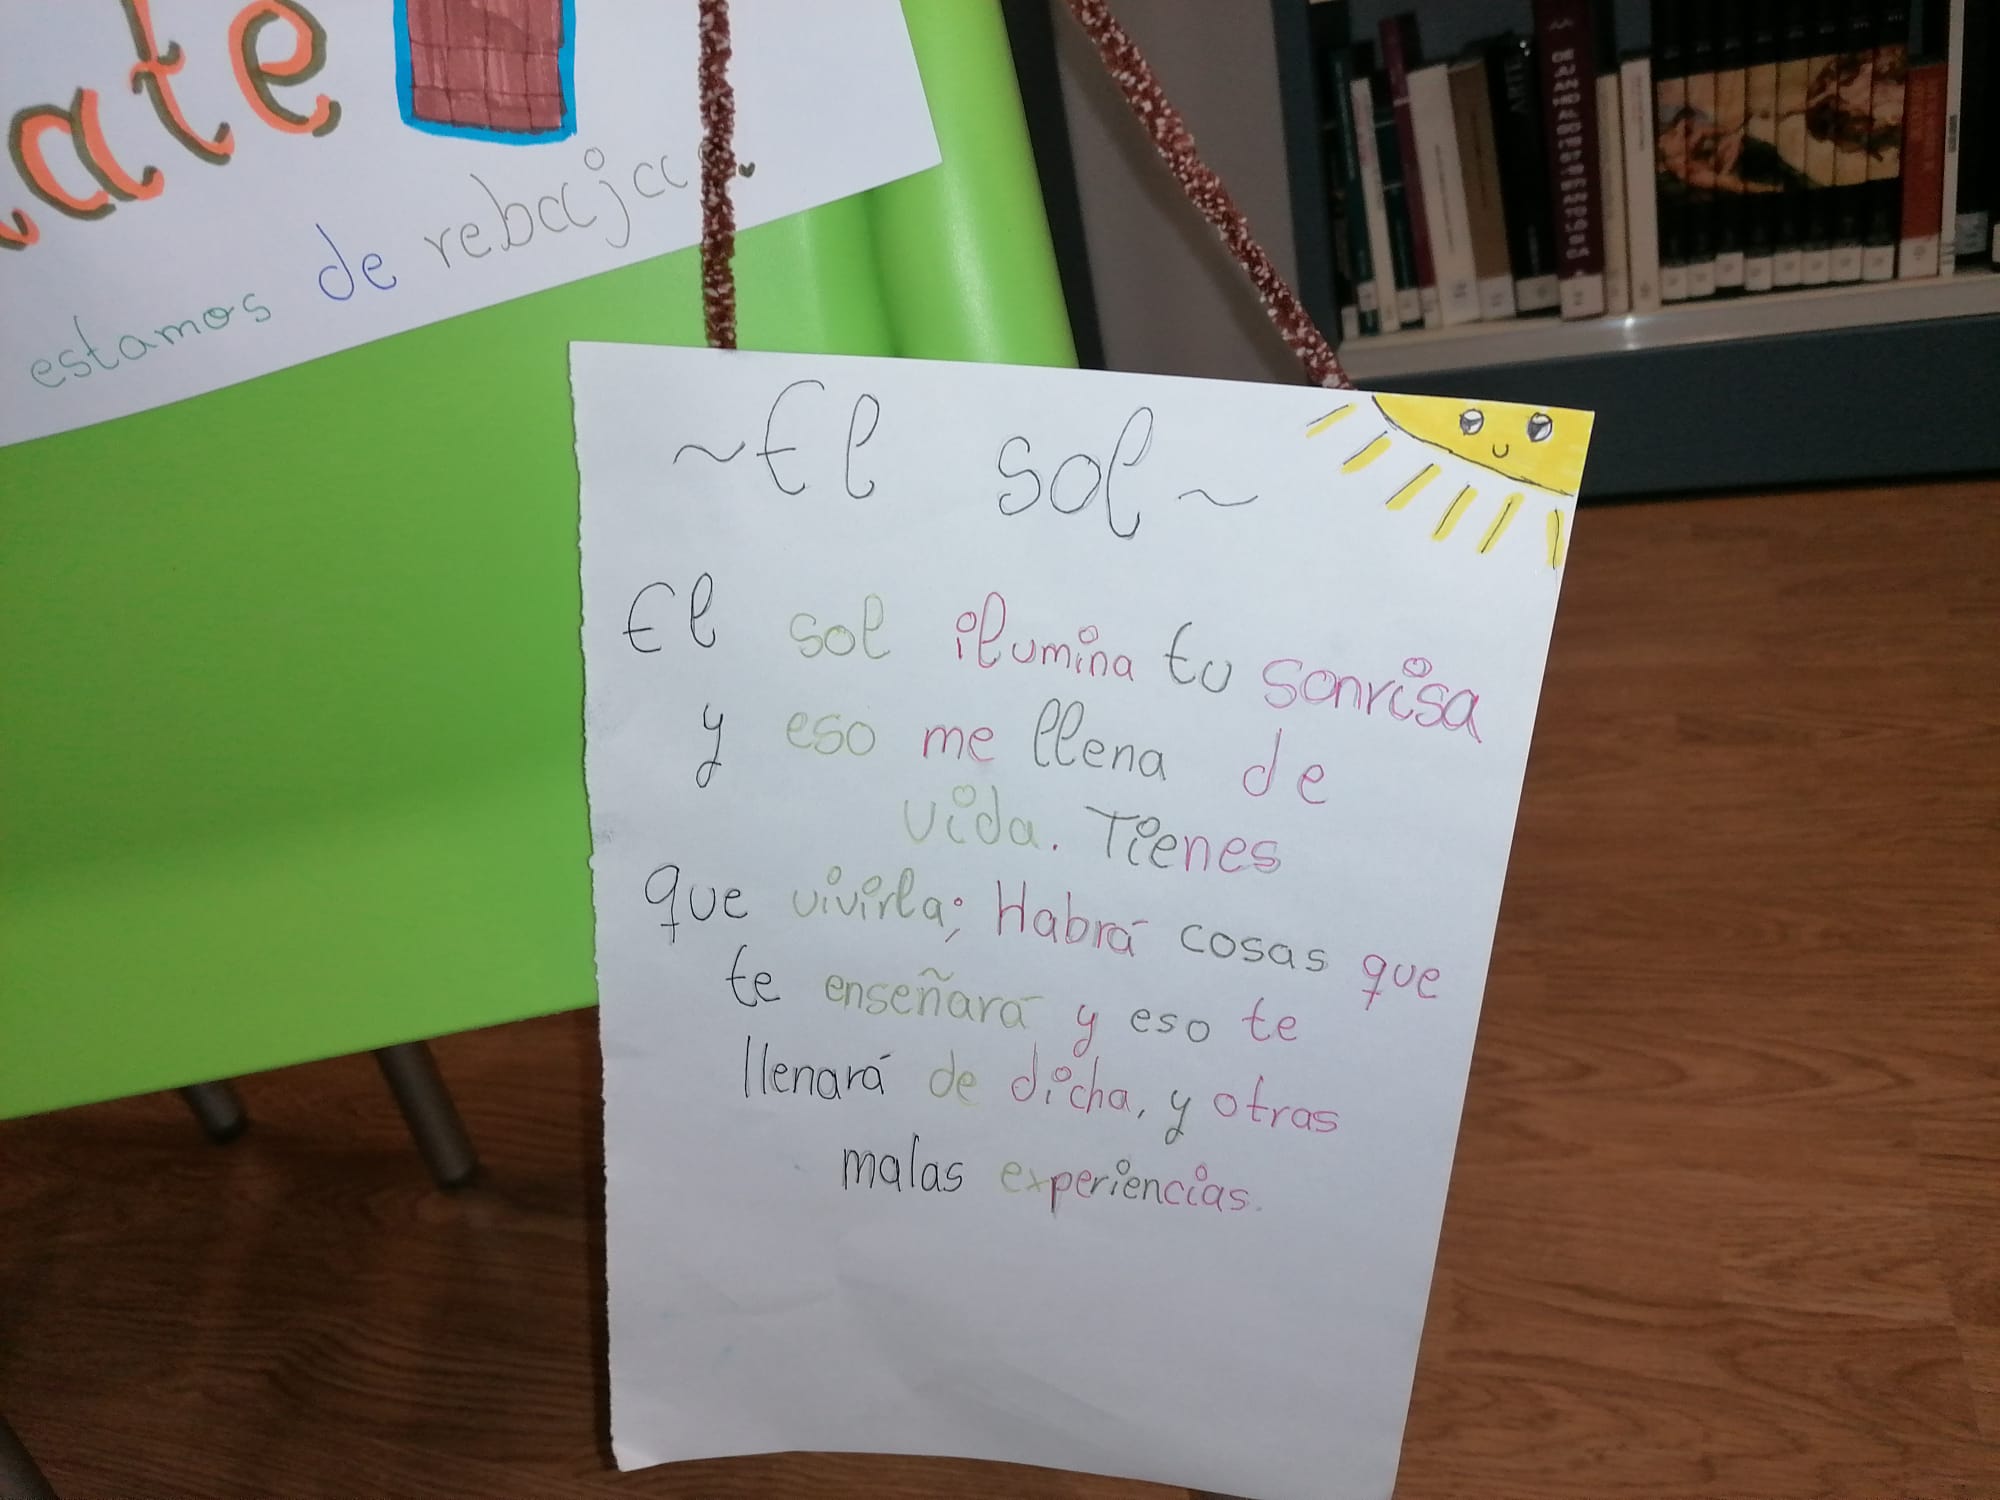 ate
estamos de rebajas.
~El sol~
El sol ilumina tu sonrisa
y eso me llena de
vida. Tienes
que vivirla; Habrá cosas que
te enseñará y eso te
llenará de dicha, y otras
malas experiencias.
ARTE